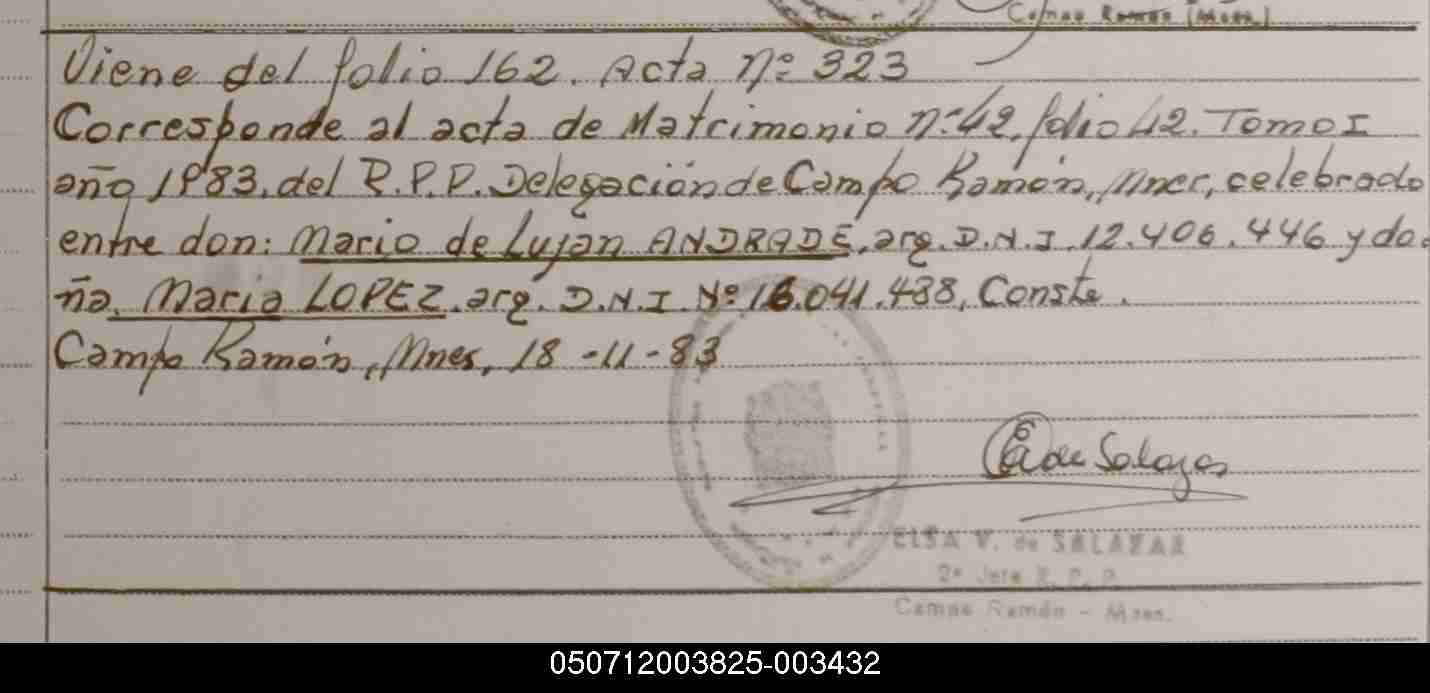 Campo Ramón (Mnes.)
Viene del folio 162. Acta Nº 323
Corresponde al acta de Matrimonio nº 42, folio 42. Tomo I
año 1983, del R.P.P. Delegación de Campo Ramón, Mnes, celebrado
entre don: Mario de Lujan ANDRADE, arg. D.N.I. 12.406.446 y do-
ña Maria LOPEZ, arg. D.N.I. Nº 16.041.438, Conste.
Campo Ramón, Mnes, 18-11-83
de Salazar
ELSA V. de SALAZAR
2ª Jefe R. P. P.
Campo Ramón - Mnes.
050712003825-003432